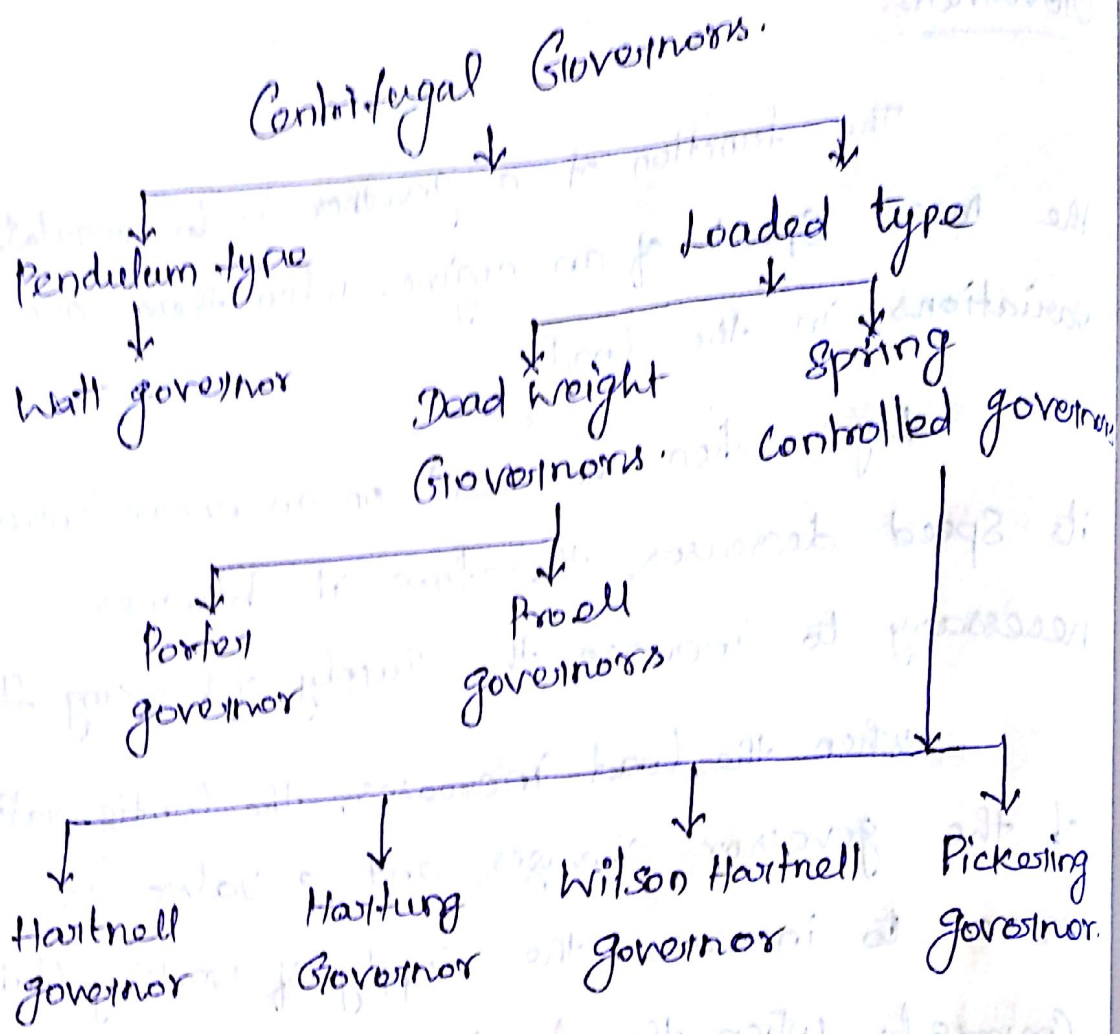 Centrifugal Governors.
Pendulum type
Loaded type
Watt governor
Dead weight
Governors.
Spring
controlled governor
Porter
governor
Proell
governors
Hartnell
governor
Hartung
Governor
Wilson Hartnell
governor
Pickering
governor.